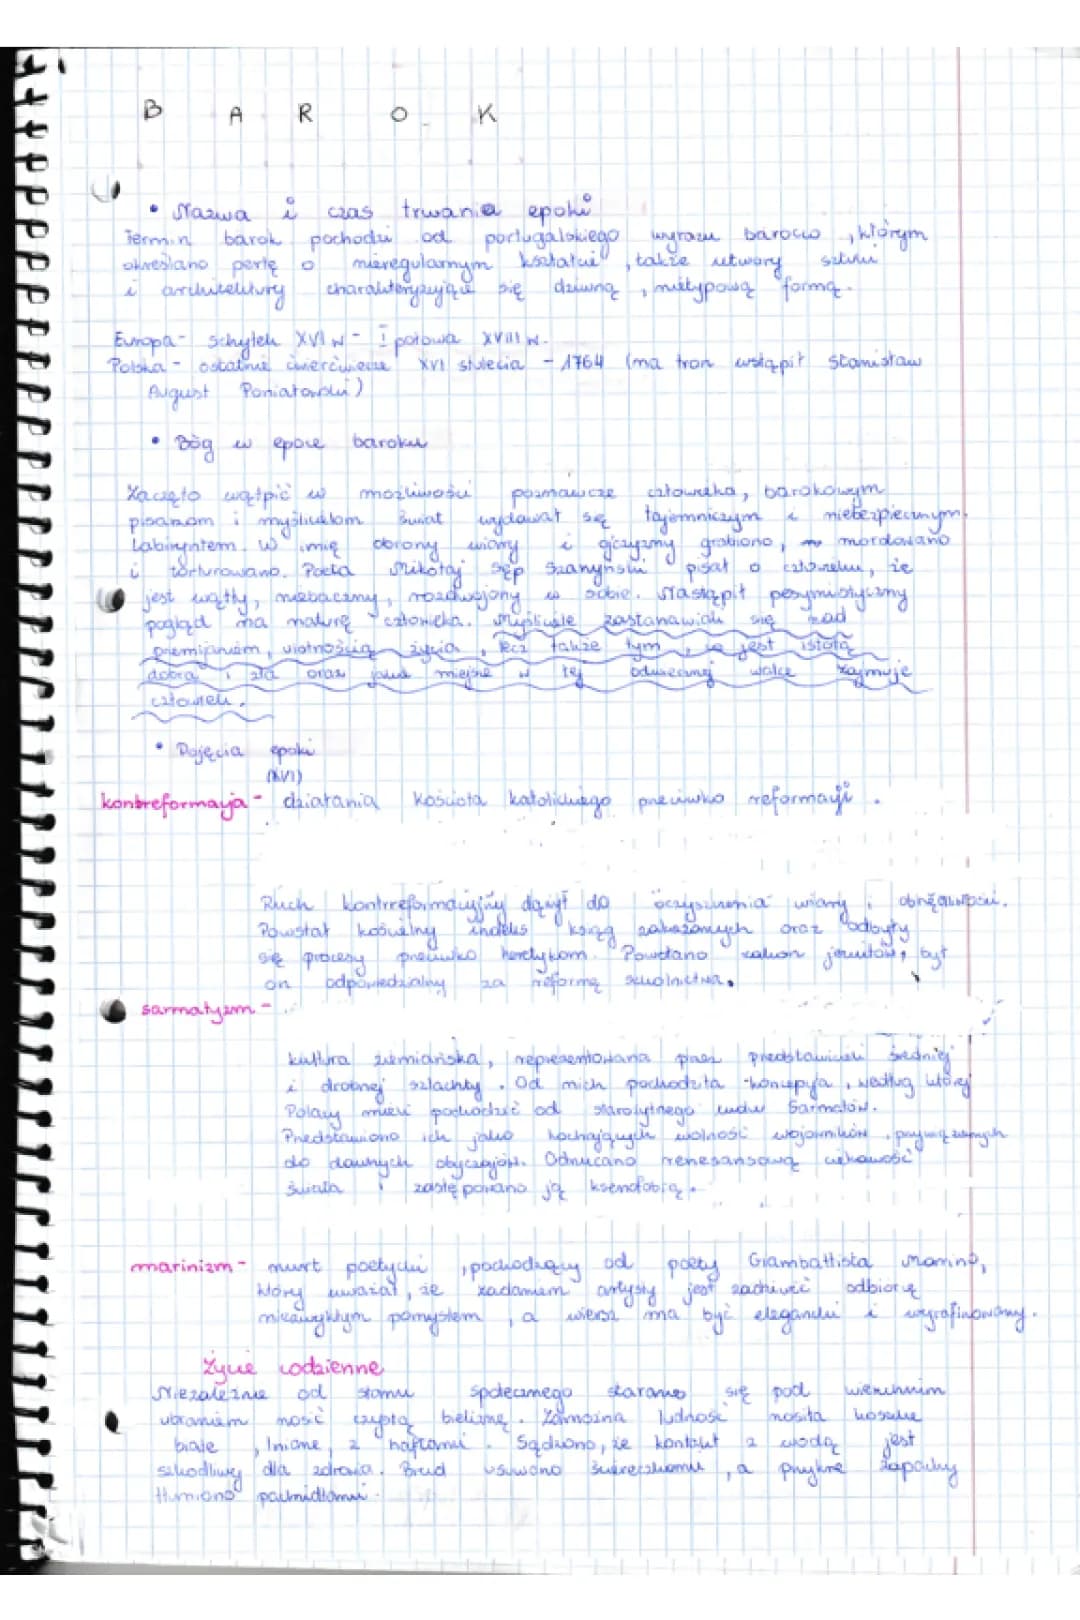 B A R O K
• Nazwa i czas trwania epoki
Termin barok pochodzi od portugalskiego wyrazu barocco, którym
określano perłę o nieregularnym kształcie, także utwory sztuki
i architektury charakteryzujące się dziwną, nietypową formą.
Europa - schyłek XVI w - I połowa XVIII w.
Polska - ostatnie ćwierćwiecze XVI stulecia - 1764 (na tron wstąpił Stanisław
August Poniatowski)
• Bóg w epoce baroku
Zaczęto wątpić w możliwości poznawcze człowieka, barokowym
pisarzom i myślicielom świat wydawał się tajemniczym i niebezpiecznym
labiryntem. W imię obrony wiary i ojczyzny grabiono, mordowano
i torturowano. Poeta Mikołaj Sęp Szarzyński pisał o człowieku, że
jest wątły, niebaczny, rozdwojony w sobie. Nastąpił pesymistyczny
pogląd na naturę człowieka. Myśliciele zastanawiali się nad
przemijaniem, ulotnością życia, lecz także tym, co jest istotą
dobra i zła oraz jakie miejsce w tej odwiecznej walce zajmuje
człowiek.
• Pojęcia epoki
(XVI)
kontreformacja - działania Kościoła katolickiego przeciwko reformacji.
Ruch kontrreformacyjny dążył do oczyszczenia wiary i obrzędowości.
Powstał kościelny indeks ksiąg zakazanych oraz odbyły
się procesy przeciwko heretykom. Powołano zakon jezuitów, był
on odpowiedzialny za reformę szkolnictwa.
sarmatyzm -
kultura ziemiańska, reprezentowana przez przedstawicieli średniej
i drobnej szlachty. Od nich pochodziła koncepcja, według której
Polacy mieli pochodzić od starożytnego ludu Sarmatów.
Przedstawiono ich jako kochających wolność wojowników, przywiązanych
do dawnych obyczajów. Odrzucano renesansową ciekawość
świata i zastępowano ją ksenofobią.
marinizm - nurt poetycki, pochodzący od poety Giambattista Marino,
który uważał, że zadaniem artysty jest zachwycić odbiorcę
niezwykłym pomysłem, a wiersz ma być elegancki i wyrafinowany.
Życie codzienne
Niezależnie od stanu społecznego starano się pod wierzchnim
ubraniem nosić czystą bieliznę. Zamożna ludność nosiła koszule
białe, lniane, z haftami. Sądzono, że kontakt z wodą jest
szkodliwy dla zdrowia. Brud usuwano ściereczkami, a przykre zapachy
tłumiono pachnidłami.